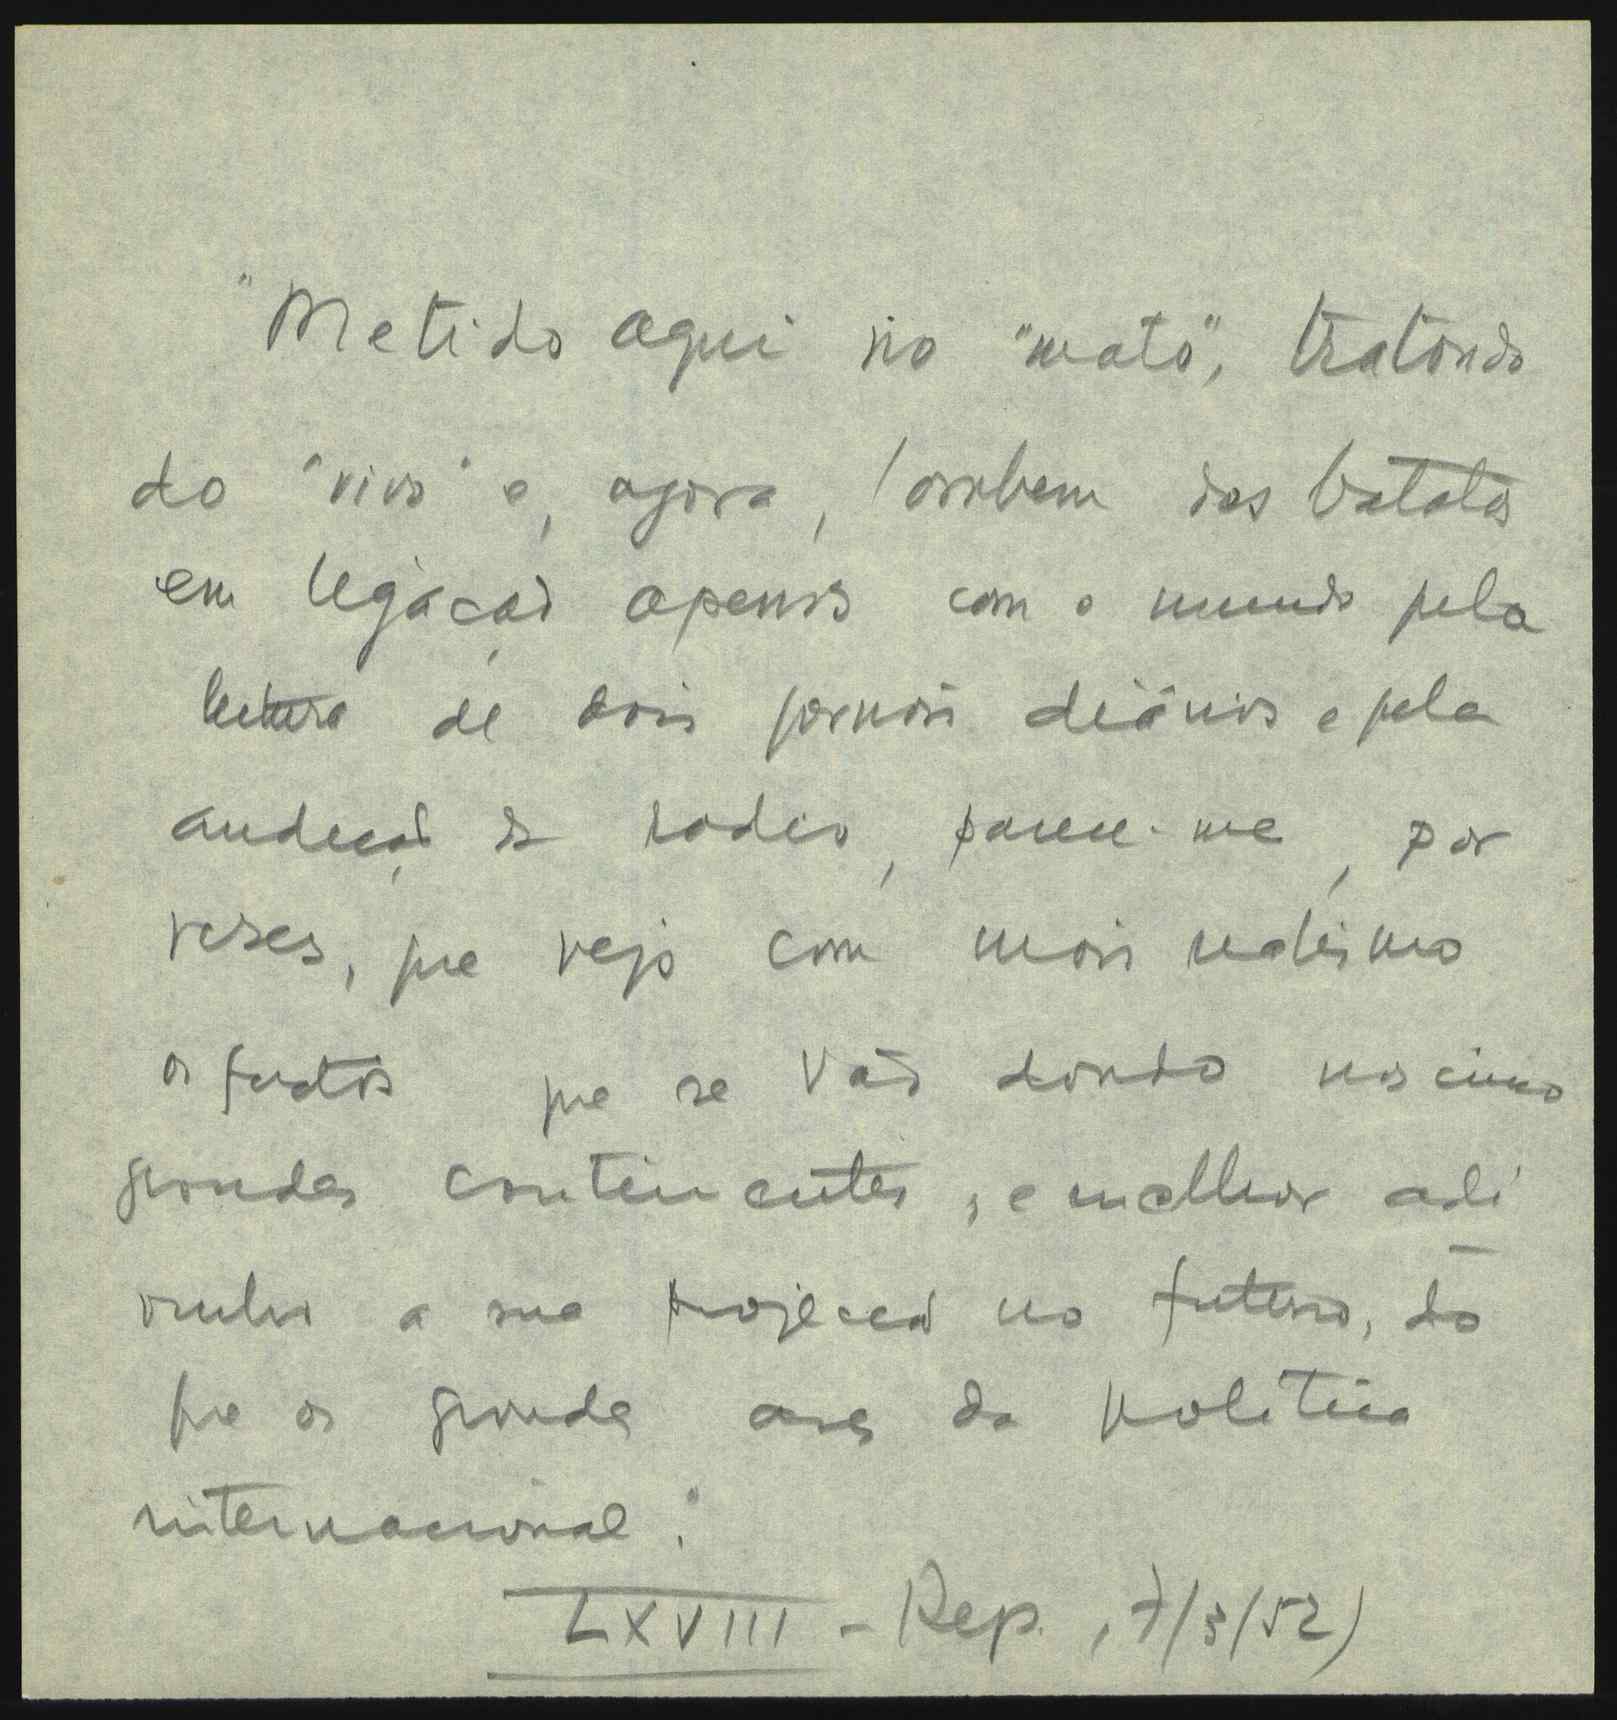 "Metido aqui no "mato", tratando
do "vivo" e, agora, tambem das batatas
em legação apenas com o mundo pela
leitura de dois jornais diários e pela
audição da radio, parece-me, por
vezes, que vejo com mais realismo
os factos que se vão dando nos cinco
grandes continentes, e melhor adi-
vinho a sua projecção no futuro, do
que os grandes ases da politica
internacional."
LXVIII - Rep., 7/3/52)